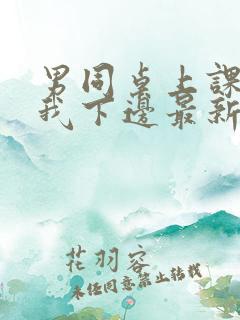 男同桌上課
我下邊最新
花羽容
未经同意禁止转载